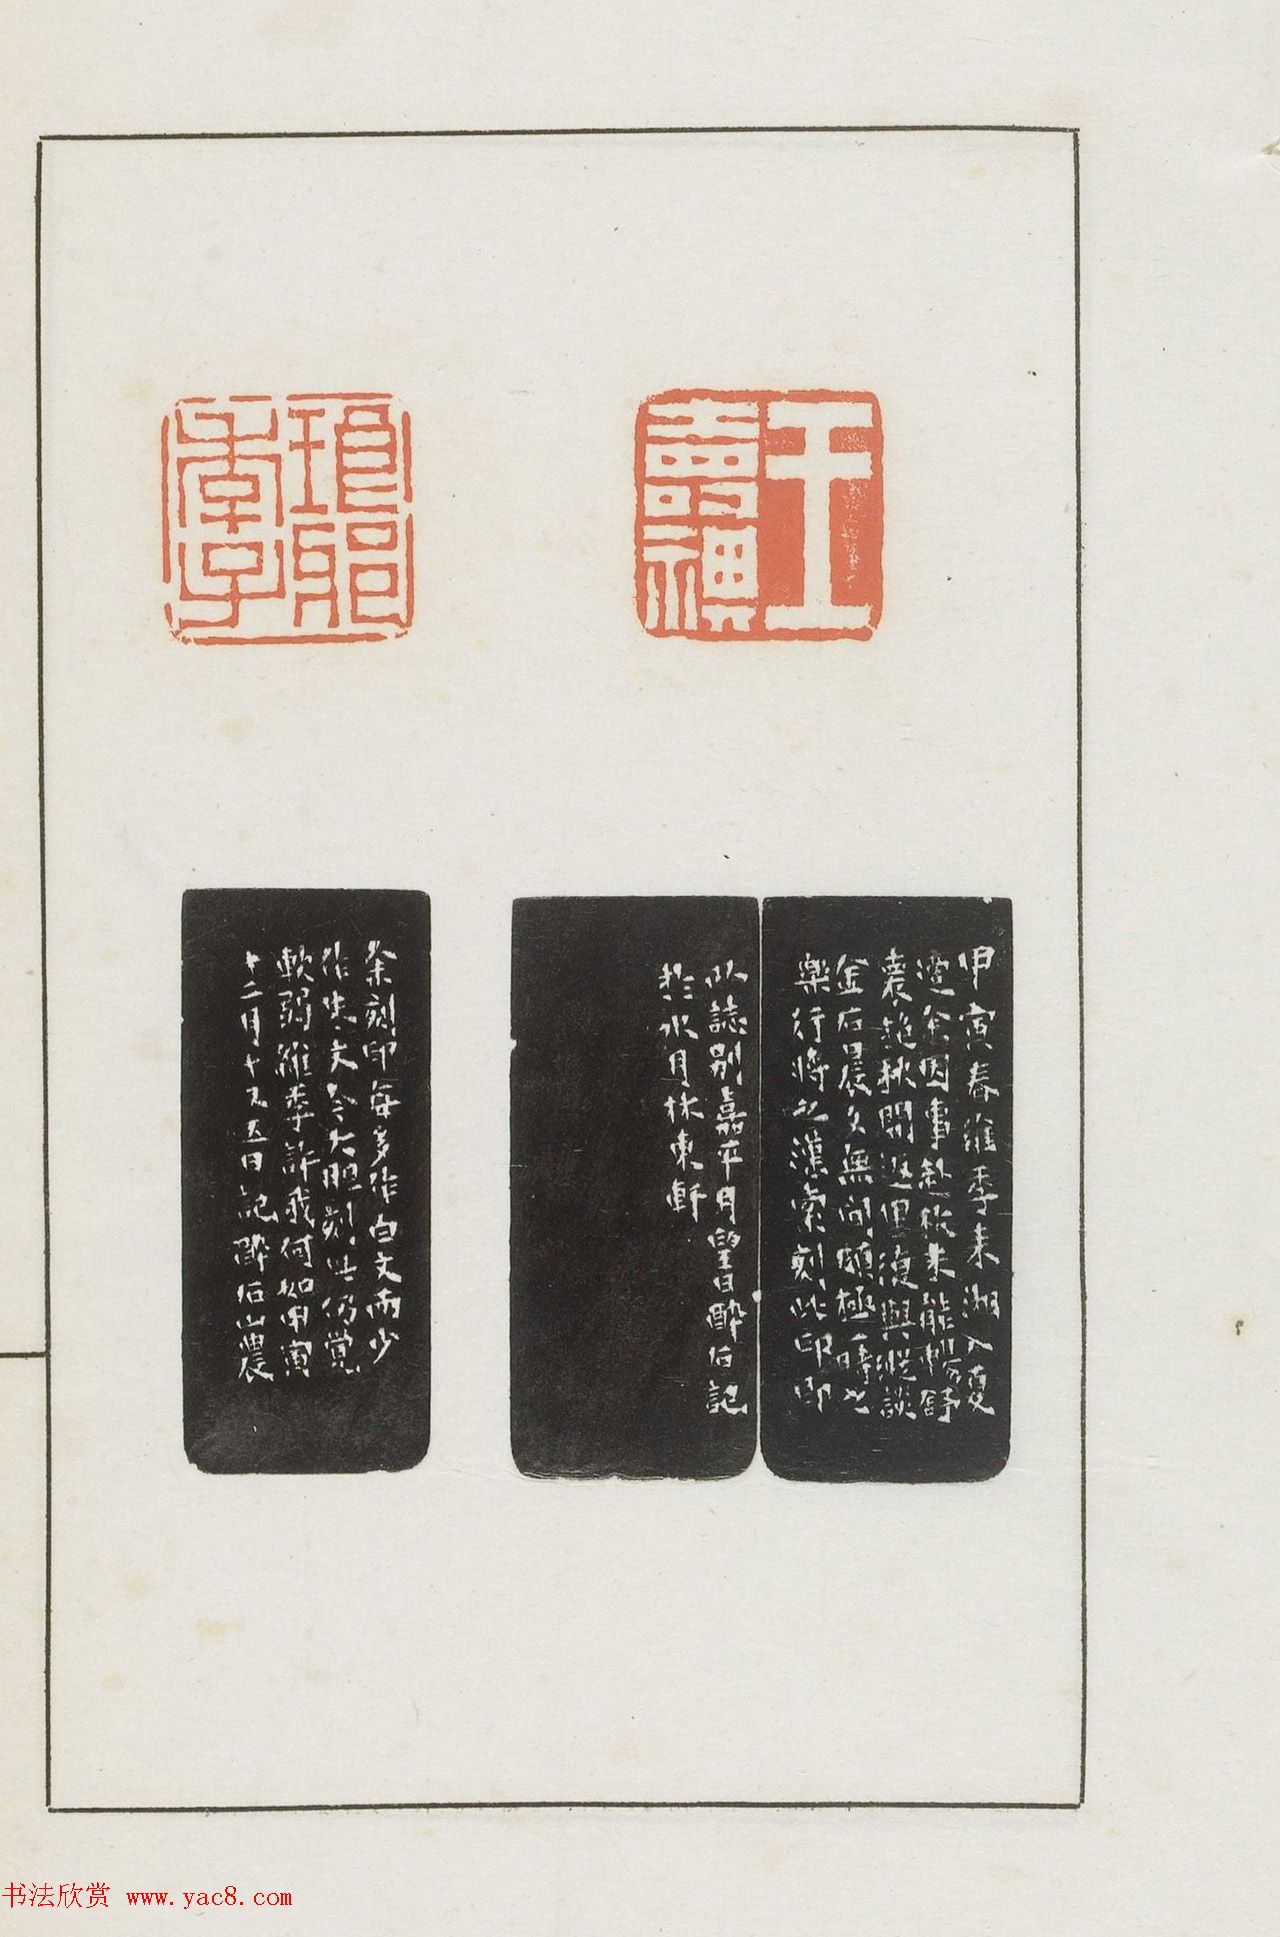 王壽祺
琅邪
季子
甲寅春維季来湘入夏
遭余因事赴湘未能暢舒
衷迨秋間返里復與縱談
金石晨夕無间頗極一時之
樂行將之漢索刻此印即
以誌别嘉平月望日醉石記
於水月林東軒
余刻印每多作白文而少
作朱文今大胆刻此仍覺
軟弱維季許我何如甲寅
十二月十又五日記醉石山農
书法欣赏 www.yac8.com